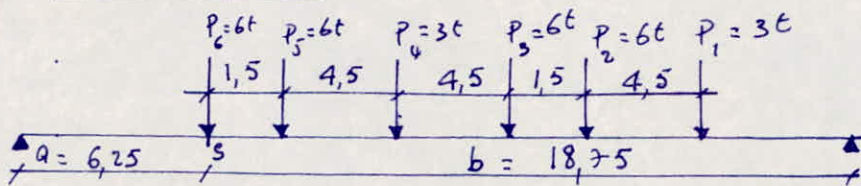 P₆=6t P₅=6t P₄=3t P₃=6t P₂=6t P₁=3t
1,5 4,5 4,5 1,5 4,5
a= 6,25 S b= 18,75